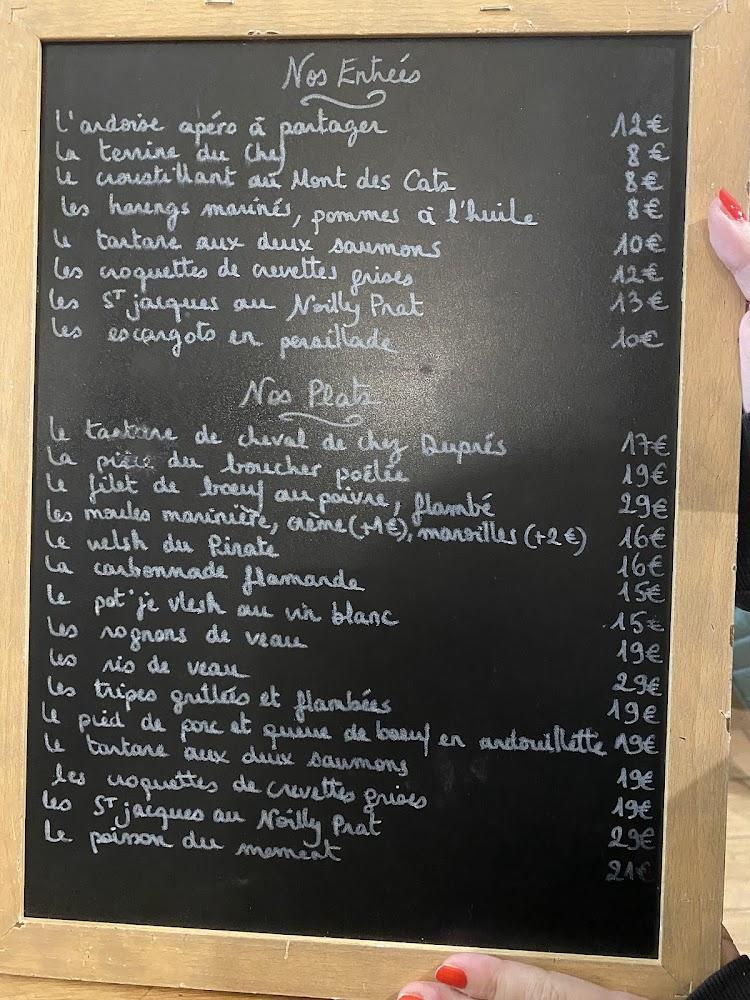 Nos Entrées
L'ardoise apéro à partager 12€
La terrine du Chef 8€
Le croustillant au Mont des Cats 8€
Les harengs marinés, pommes à l'huile 8€
Le tartare aux deux saumons 10€
Les croquettes de crevettes grises 12€
Les ST jacques au Noilly Prat 13€
Les escargots en persillade 10€
Nos Plats
Le tartare de cheval de chez Duprés 17€
La pièce du boucher poêlée 19€
Le filet de boeuf au poivre, flambé 29€
Les moules marinière, crème (+1€), maroilles (+2€) 16€
Le welsh du Pirate 16€
La carbonnade flamande 15€
Le pot'je vlesh au vin blanc 15€
Les rognons de veau 19€
Les ris de veau 29€
Les tripes grillées et flambées 19€
Le pied de porc et queue de boeuf en andouillette 19€
Le tartare aux deux saumons 19€
Les croquettes de crevettes grises 19€
Les ST jacques au Noilly Prat 29€
Le poisson du moment 21€